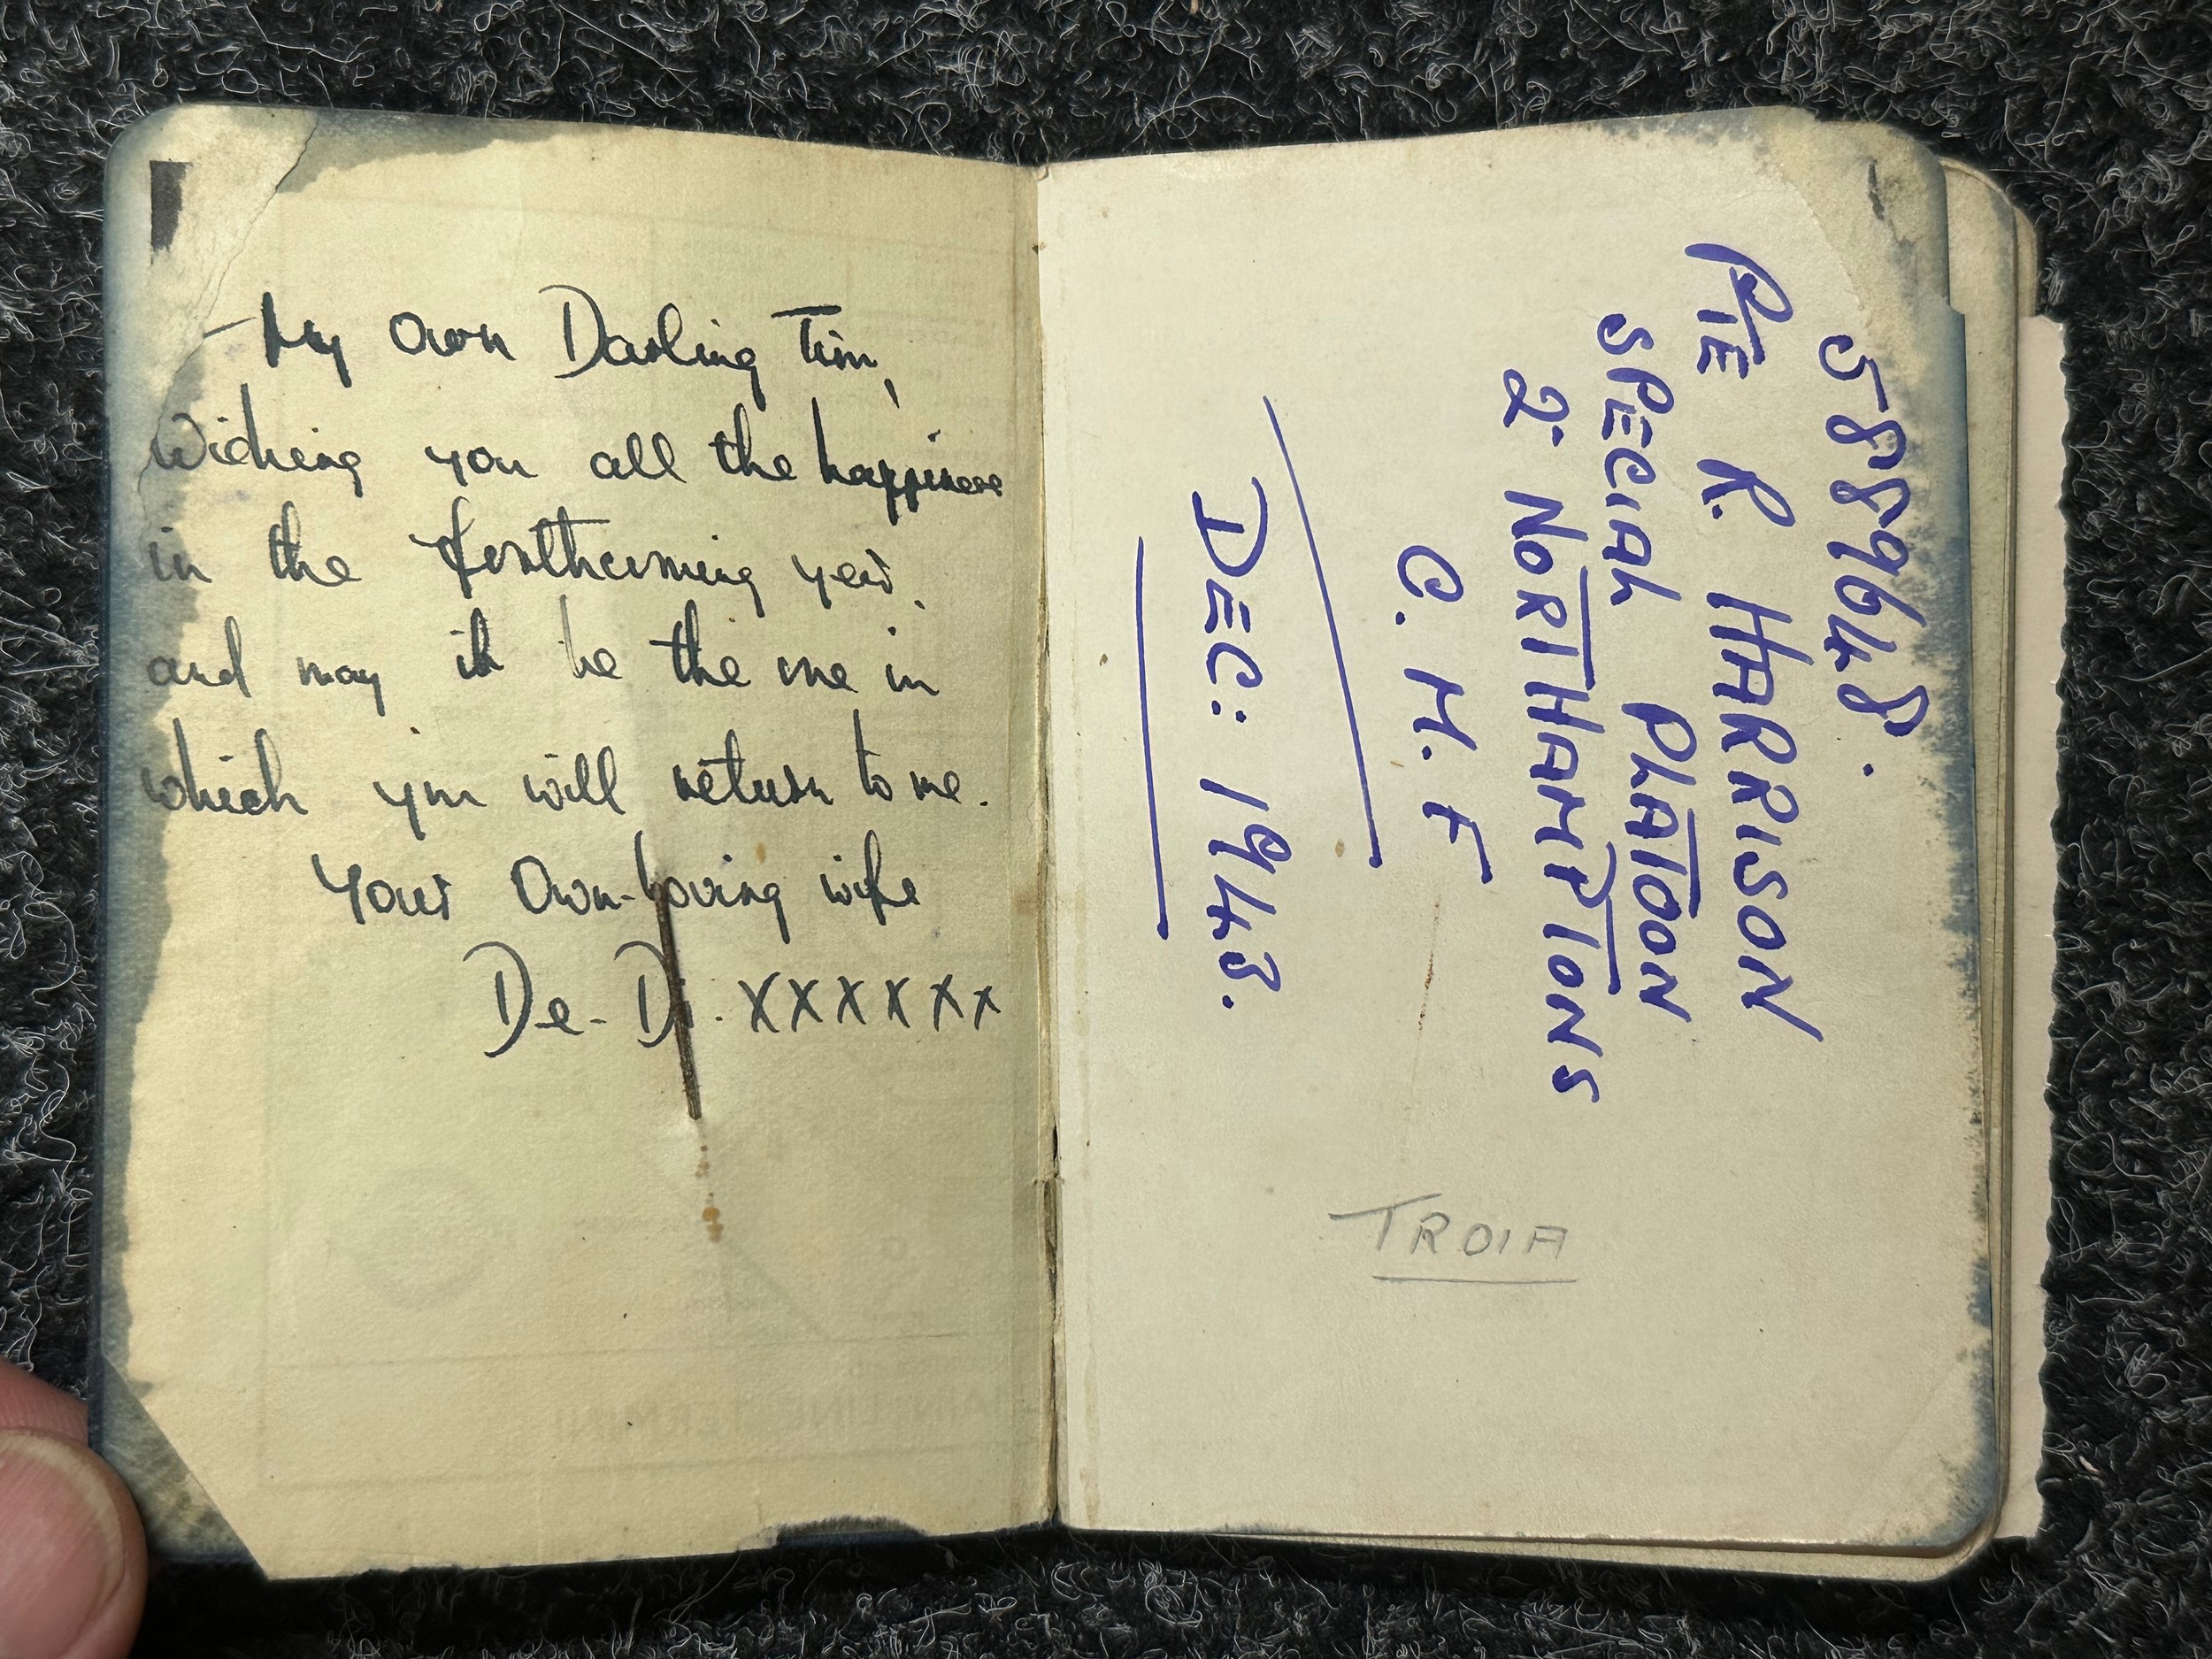 My Own Darling Tim,
Wishing you all the happiness
in the forthcoming year,
and may it be the one in
which you will return to me.
Your Own-loving wife
De-Di. xxxxxx
5889648.
PTE R. HARRISON
SPECIAL PLATOON
2. NORTHAMPTONS
C. M. F
DEC: 1943.
TROIA